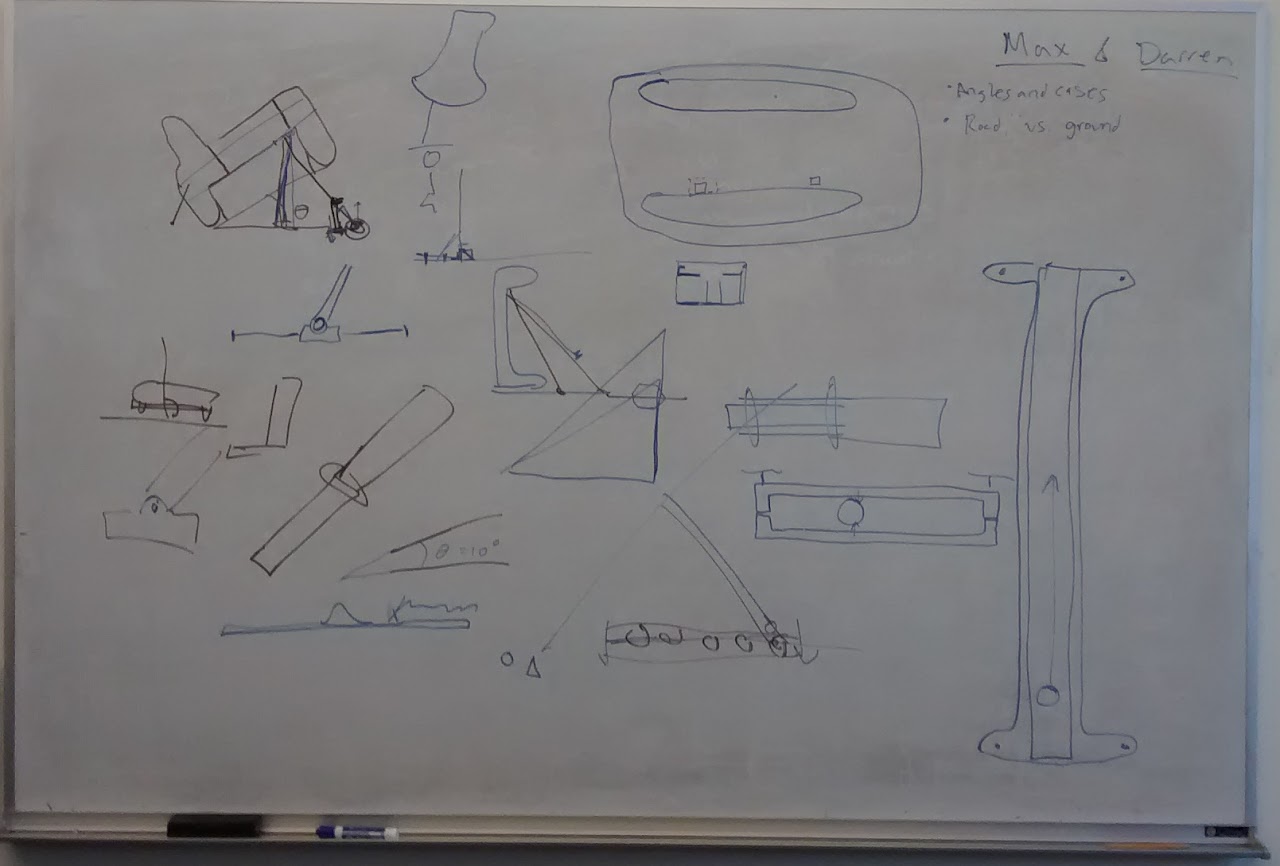 Max & Darren
• Angles and cases
• Road vs. ground
θ = 10°